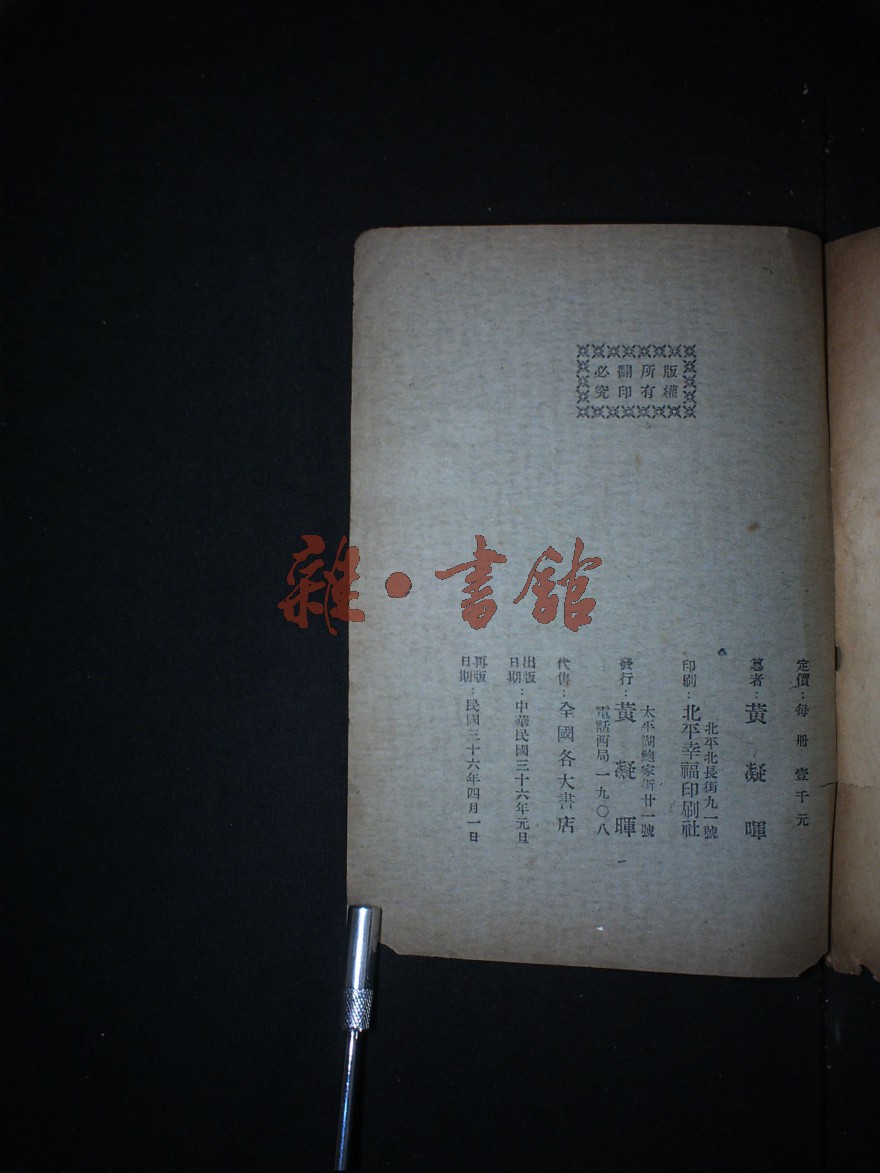 版權
所有
翻印
必究
定價：每冊壹千元
著者：黃凝暉
北平北長街九一號
印刷：北平幸福印刷社
太平湖鮑家街廿一號
發行：黃凝暉
電話西局一九〇八
代售：全國各大書店
出版日期：中華民國三十六年元旦
再版日期：民國三十六年四月一日
雜·書館